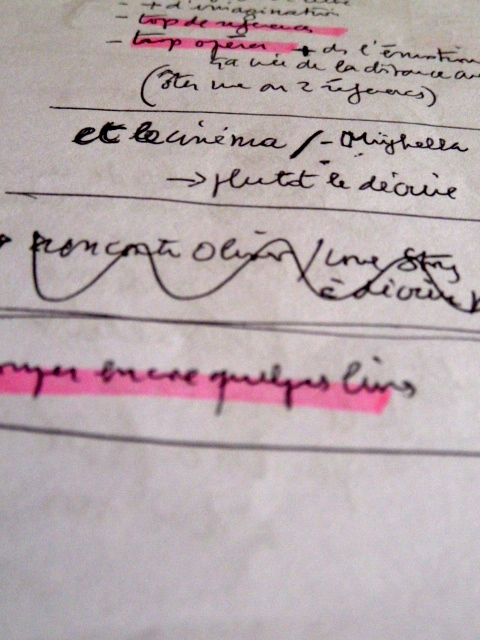 - + d'imagination
- trop de références
- trop opéra + ds l'émotion
la vie de la distance
(ôter une ou 2 références)
et le cinéma / - Minghella
→ plutôt le décrire
rencontre Olivier / Love Story
à décrire
encore quelques liens